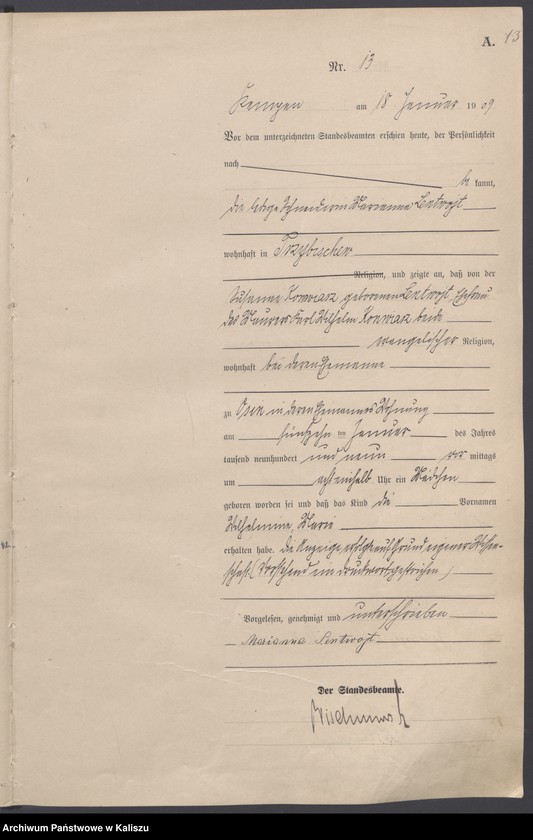 A. 13
Nr. 13
Kempen am 18 Januar 1909
Vor dem unterzeichneten Standesbeamten erschien heute, der Persönlichkeit
nach
be kannt,
die ledige Schneiderin Marianna Lentwojt
wohnhaft in
Religion, und zeigte an, daß von der
Susanna geborenen Lentwojt, Ehefrau
des Maurers Karl Wilhelm beide
evangelischer Religion,
wohnhaft bei deren Ehemanne
zu Osin in deren Ehemannes Wohnung
am fünfzehn ten Januar des Jahres
tausend neunhundert und neun vor mittags
um achteinhalb Uhr ein Mädchen
geboren worden sei und daß das Kind die Vornamen
Wilhelmine, Marie
erhalten habe. Die Anzeige erfolgte auf Grund eigener Wissen-
schaft. (Vorstehend ein Druckwort gestrichen)
Vorgelesen, genehmigt und unterschrieben
Marianna Lentwojt
Der Standesbeamte.
Archiwum Państwowe w Kaliszu